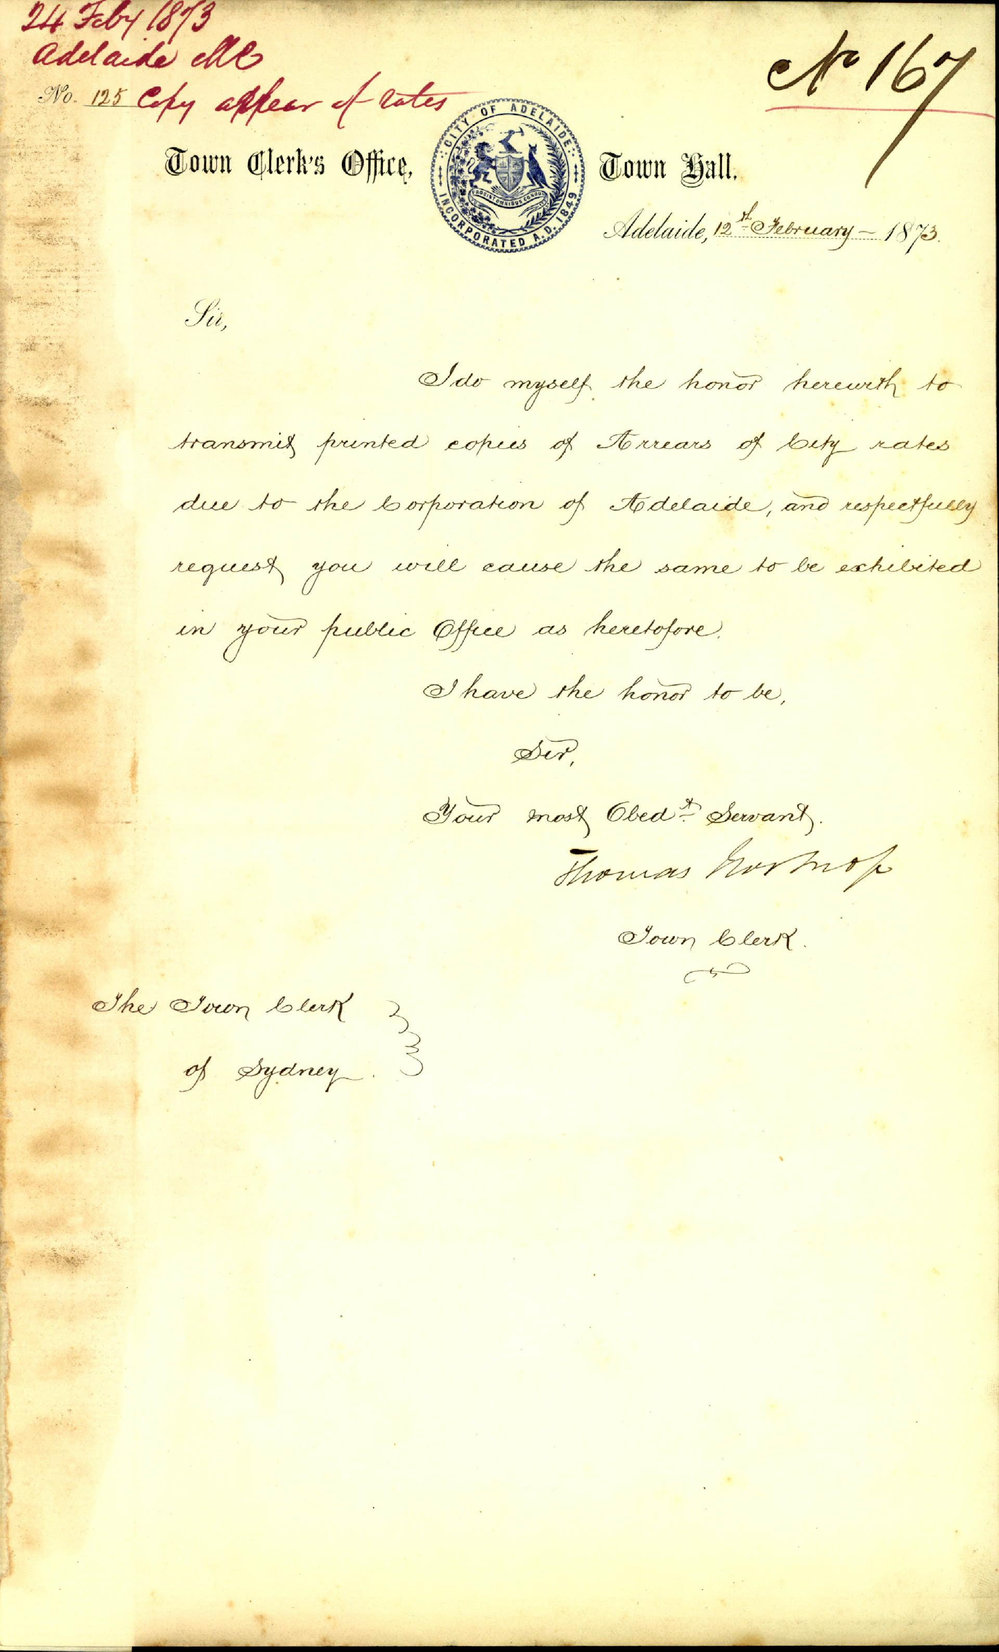 24 Feby 1873
Adelaide MC
No. 125 Copy appear of rates
No 167
CITY OF ADELAIDE
INCORPORATED A.D. 1849
Town Clerk's Office, Town Hall.
Adelaide, 12th February – 1873.
Sir,
I do myself the honor herewith to
transmit printed copies of Arrears of City rates
due to the Corporation of Adelaide, and respectfully
request you will cause the same to be exhibited
in your public Office as heretofore.
I have the honor to be,
Sir,
Your most Obedt Servant.
Thomas Worsnop
Town Clerk.
The Town Clerk
of Sydney.